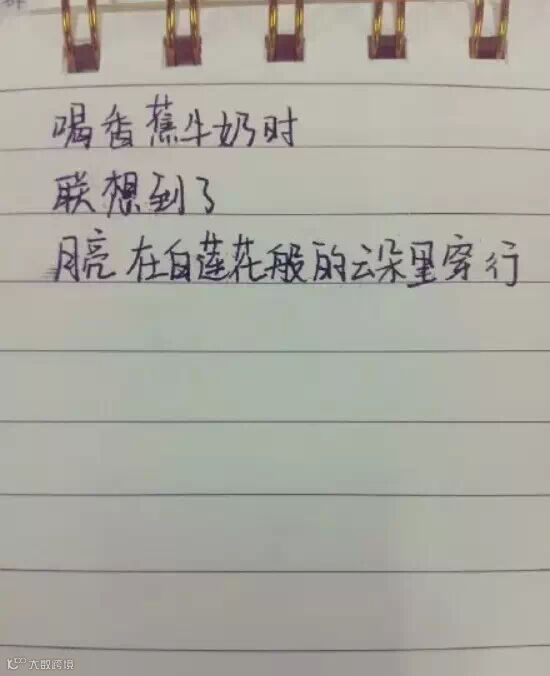 喝香蕉牛奶时
联想到了
月亮在白莲花般的云朵里穿行
大数跨境